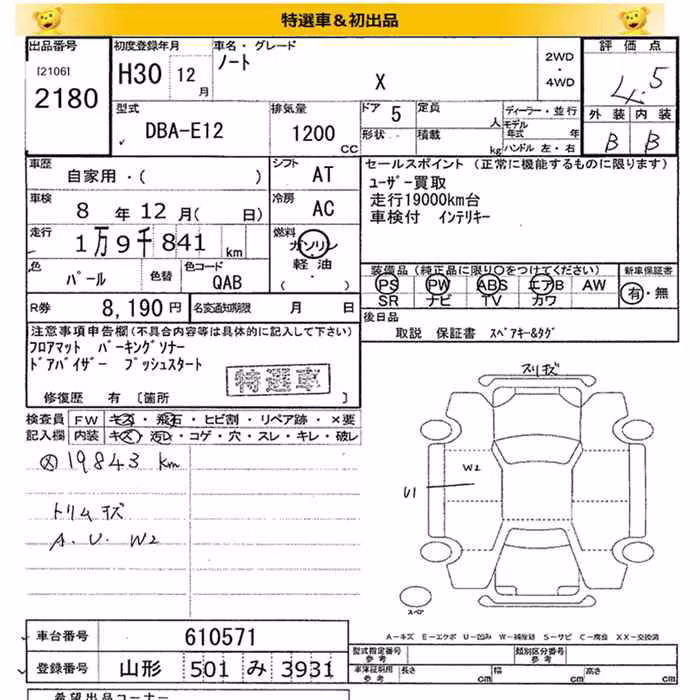 特選車＆初出品
出品番号
[2106]
2180
初度登録年月
H30 12月
車名・グレード
ノート
X
2WD
・
4WD
評価点
4.5
外装 内装
B B
型式
DBA-E12
排気量
1200 CC
ドア 5
形状
定員 人
積載 kg
ディーラー・並行
モデル年式 年
ハンドル 左・右
車歴
自家用・( )
シフト AT
車検
8 年 12 月( 日)
冷房 AC
走行
1万9千841 km
燃料
ガソリン
・
軽油
・
( )
色
パール
色替
色コード
QAB
R券 8,190 円
名変通知期限 月 日
セールスポイント (正常に機能するものに限ります)
ユーザー買取
走行19000km台
車検付 インテリキー
装備品 (純正品に限り○をつけてください)
PS PW ABS エアB AW
SR ナビ TV カワ
新車保証書
有・無
後日品
取説 保証書 スペアキー&タグ
注意事項申告欄 (不具合内容等は具体的に記入して下さい)
フロアマット パーキングソナー
ドアバイザー プッシュスタート
特選車
修復歴 有 [箇所 ]
検査員 FW キズ・飛石・ヒビ割・リペア跡・×要
記入欄 内装 キズ・汚レ・コゲ・穴・スレ・キレ・破レ
19843 km
トリムキズ
A. U. W2
スリキズ
W2
U1
スペア
A－キズ E－エクボ U－凹み W－補修跡 S－サビ C－腐食 XX－交換済
車台番号 610571
登録番号 山形 501 み 3931
型式指定番号
参考
類別区分番号
参考
車庫証明記載
参考
長さ cm
幅 cm
高さ cm
希望出品コーナー